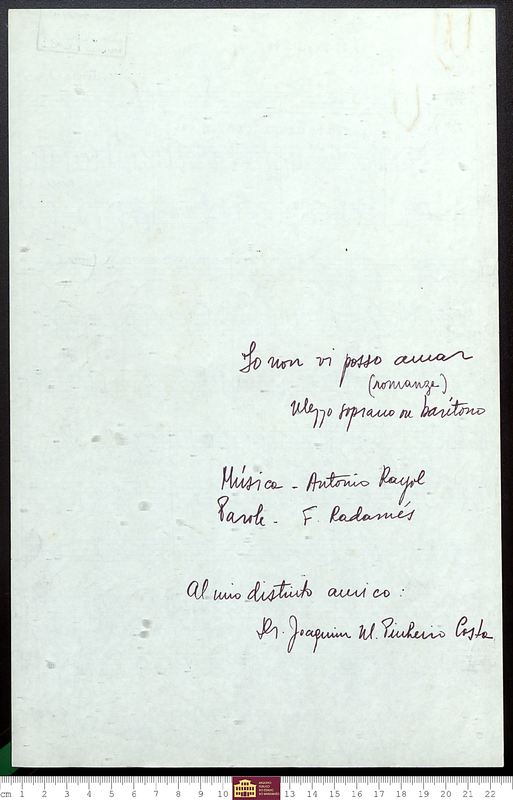 Io non vi posso amar
(romanze)
Mezzo soprano ou barítono
Música - Antonio Rayol
Parole - F. Radamés
Al mio distinto amico:
Dr. Joaquim M. Pinheiro Costa
cm 1 2 3 4 5 6 7 8 9 10 13 14 15 16 17 18 19 20 21 22
ARQUIVO
PÚBLICO
DO ESTADO
DO MARANHÃO